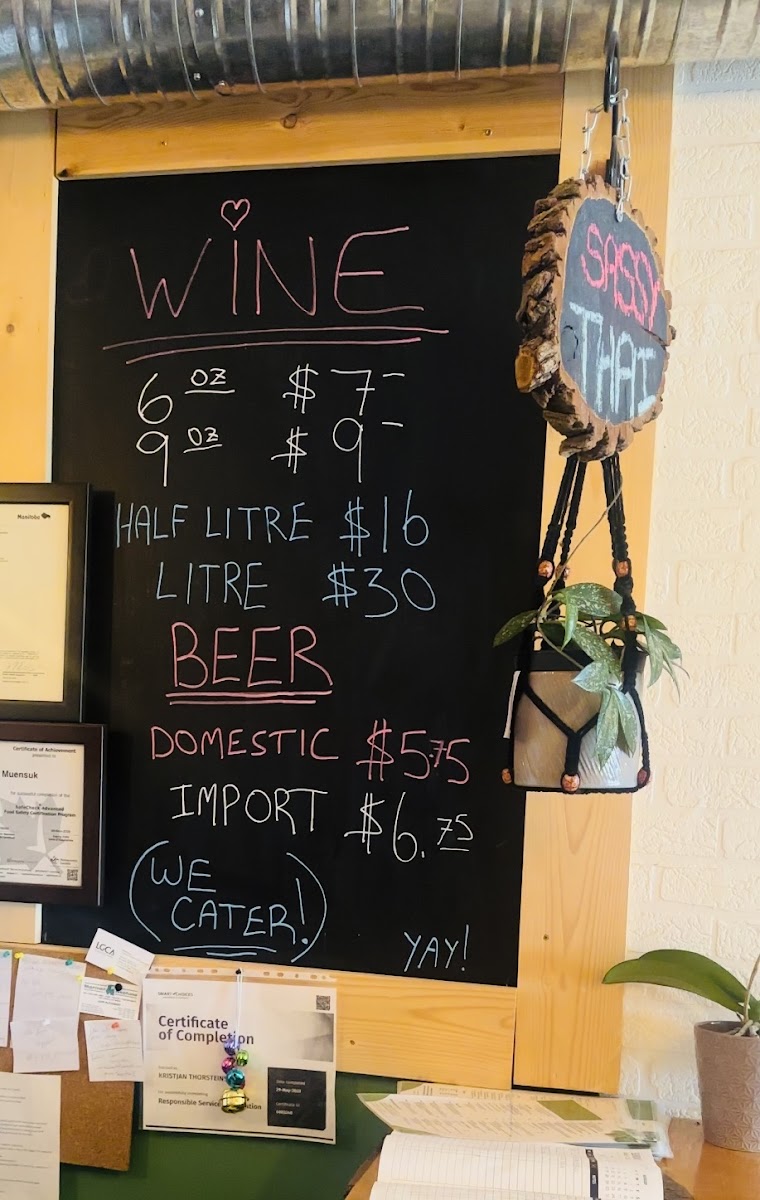 WINE
6 OZ $7-
9 OZ $9-
HALF LITRE $16
LITRE $30
BEER
DOMESTIC $5.75
IMPORT $6.75
(WE
CATER!)
YAY!
SASSY
THAI
Manitoba
Certificate of Achievement
Muensuk
Food Safety Certification Program
LGCA
Certificate
of Completion
KRISTJAN THORSTEIN
Responsible Service